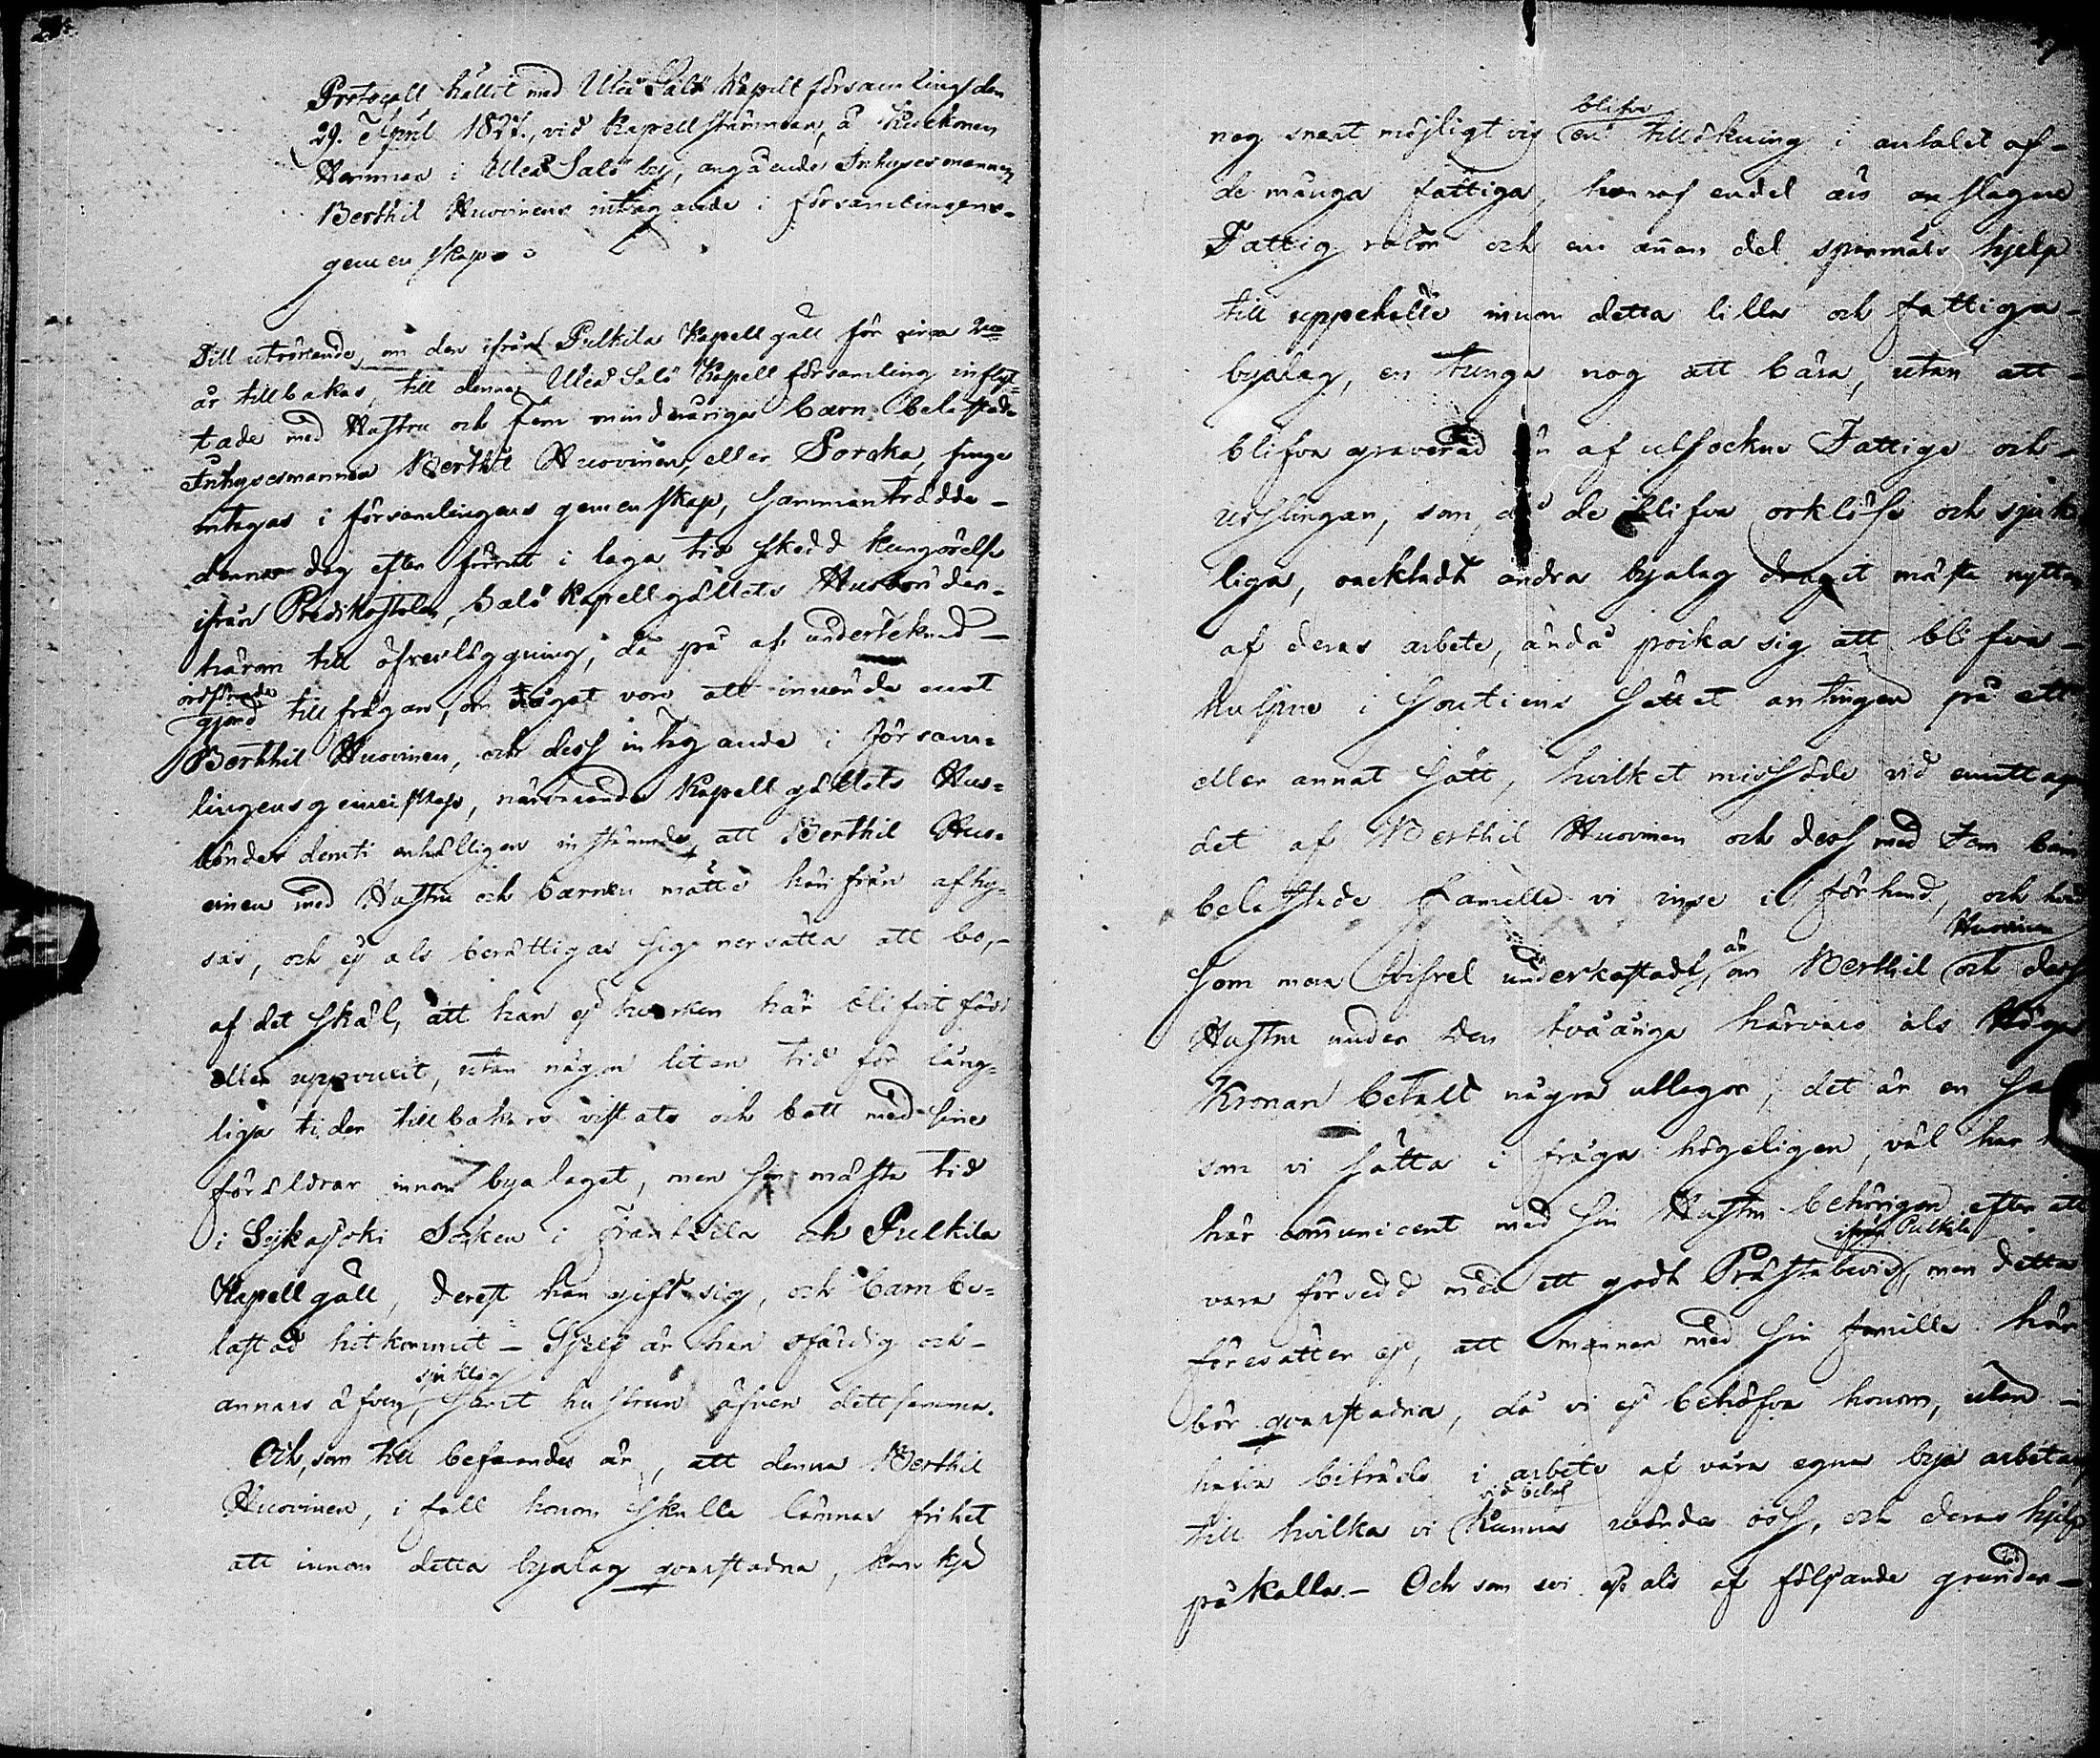 Protocoll hållit med Uleå Salo Kapell församling den
29. April 1827., vid Kapellstämman, å Kuckonen
Hemman i Uleå Salo by, angående Inhyses mannen
Berthil Huovinens intagande i församlingens-
gemenskap.
Till utrönende, om den ifrån Pulkila Kapellgäll för circa 2ne
år tillbakas, till denna Uleå Salo Kapell församling inflyt-
tade med Hustru och Fem minderåriga barn belastade
Inhysesmannen Berthil Huovinen, eller Sorcka, finge
intagas i församlingens gemenskap, sammanträdde-
denna dag efter förut i laga tid skedd kungörelse
ifrån Predikostolen, Salo Kapellgällets Husbönder-
härom till öfverläggning, då på af underteknad-
ordförande
gjord tillfrågan, om något vore att invända emot
Berthil Huovinen, och dess intagande i försam-
lingens gemenskap, närvarande Kapellgällets Hus-
bönder demti enhälligen instämde, att Berthil Huo-
vinen med Hustru och barnen måtte härifrån afhy-
sas, och ej als berättigas sig nersätta att bo,-
af det skäl, att han ej hvarken här blifvit född
eller uppvuxit, utan någon liten tid för läng-
liga tider tillbakars vistats och bott med sine
föräldrar innom byalaget, men sin mästa tid
i Siikajoki Socken i Frantsila och Pulkila
Kapellgäll, derest han gift sig, och barn be-
lastad hitkommit - Sjelf är han ofärdig och-
sjuklig
annars äfven, samt hustrun äfven dettsamma.
Och, som till befarandes är, att denna Berthil
Huovinen, i fall honom skulle lämnas frihet
att innom detta byalag qvarstadna, kan hje
blifva
nog snart möjligtvis en tillökning i antalet af-
de många fattiga, hvaraf endel äro anslagne
Fattig rotor och en annan del spanmåls hjelp
till uppehälle innom detta lilla och fattiga-
byalag, en tunga nog att bära, utan att-
blifva graverad än af utsocknes Fattige och-
usslingar, som, då de blifva orklöse och sjuk
liga, oacktadt andra byalag dragit mästa nyttan
af deras arbete, ändå poika sig att blifva-
hulpne i soutiens sättet antingen på ett
eller annat sätt, hvilket missöde vid emottagan
det af Berthil Huovinen och dess med Fem barn
belastade Famille vi inse i förhand, och hvad
Huovinen
är
som mera tvifvel underkastadt, om Berthil och dess
Hustru under den tvååriga härvaro als Höga
Kronan betalt några utlagor, det är en sa
som vi sätta i fråga högeligen, väl har
här communicent med sin Hustru behörigen efter att
ifrån Pulkila
vara försedd med ett godt Prästabevis, men detta
föresätter ej, att mannen med sin famille här
bör qvarstadna, då vi ej behöfva honom, utan -
hafva biträde i arbete af våra egna bya arbetare
vid behof
till hvilka vi kunna vända oss, och deras hjelp
påkalla. - Och som vi ej als af följande grunder-